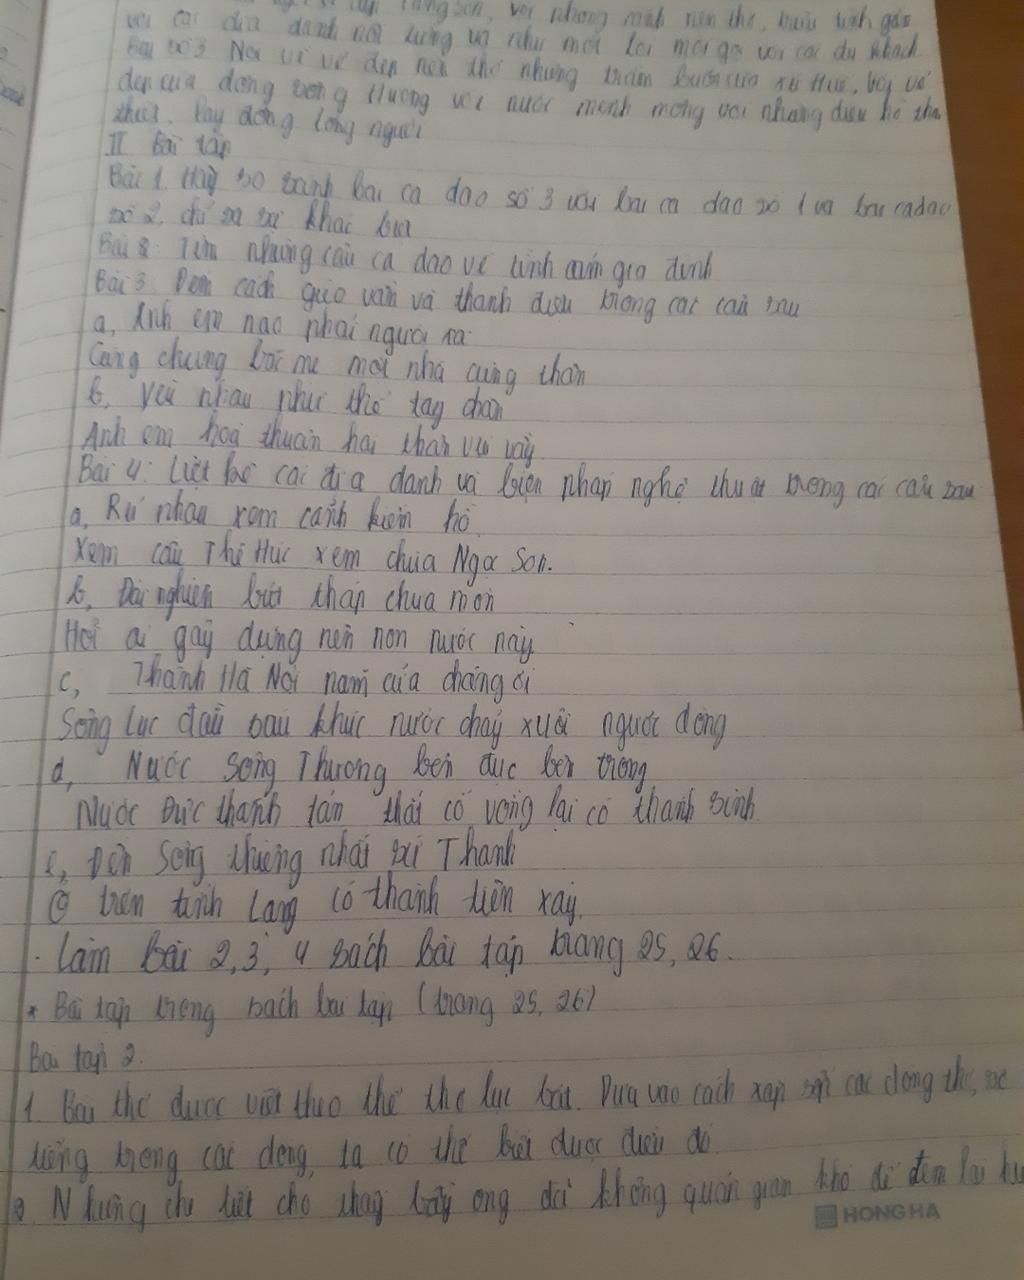 với các địa danh nổi tiếng và như một lời mời gọi với các du khách
Bài số 3 Nói về vẻ đẹp nên thơ nhưng trầm buồn của xứ Huế, bởi vẻ
đẹp của dòng sông Hương với nước mênh mông với những điệu hò tha
thiết. lay động lòng người
II Bài tập
Bài 1. Hãy so sánh bài ca dao số 3 với bài ca dao số 1 và bài ca dao
số 2, chỉ ra sự khác biệt
Bài 2: Tìm những câu ca dao về tình cảm gia đình
Bài 3: Đếm cách gieo vần và thanh điệu trong các câu sau
a, Anh em nào phải người xa
Cùng chung bác mẹ một nhà cùng thân
b, Yêu nhau như thể tay chân
Anh em hoà thuận hai thân vui vầy
Bài 4: Liệt kê các địa danh và biện pháp nghệ thuật trong các câu sau
a, Rủ nhau xem cảnh kiếm hồ
Xem cầu Thê Húc xem chùa Ngọc Sơn.
b, Đài nghiên bút tháp chưa mòn
Hỏi ai gây dựng nên non nước này
c, Thành Hà Nội năm cửa chàng ơi
Sông Lục đầu sáu khúc nước chảy xuôi ngược dòng
d, Nước Sông Thương bên đục bên trong
Núi Đức thánh tản thắt cổ vong lại có thánh sinh
e, Đền Sòng thiêng nhất xứ Thanh
Ở trên tỉnh Lạng có thành tiên xây.
. Làm bài 2, 3, 4 sách bài tập trang 25, 26.
* Bài tập trong sách bài tập (trang 25, 26)
Bài tập 2.
1. Bài thơ được viết theo thể thơ lục bát. Dựa vào cách xắp sếp các dòng thơ, số
tiếng trong các dòng, ta có thể biết được điều đó
2. Những chi tiết cho thấy bầy ong đã không quản gian khó để đem lại
HONG HA